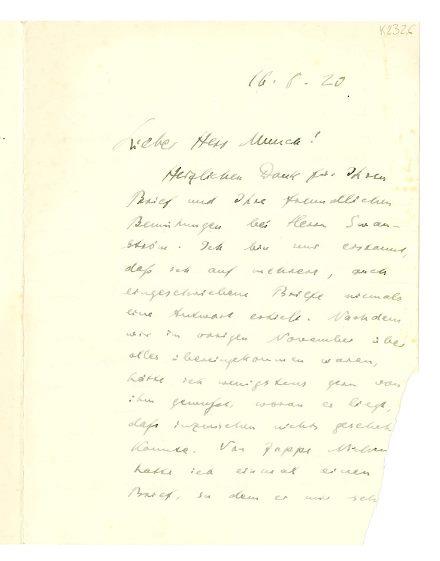 K2326
16. 8. 20
Lieber Herr Munch!
Herzlichen Dank für Ihren
Brief und Ihre freundlichen
Bemühungen bei Herrn Swan-
ström. Ich bin nur erstaunt,
daß ich auf mehrere, auch
eingeschriebene Briefe niemals
eine Antwort erhielt. Nachdem
wir im vorigen November über
alles übereingekommen waren,
hätte ich wenigstens gern von
ihm gewußt, woran es liegt,
daß inzwischen nichts gescheh
konnte. Von Jappe
hatte ich einmal einen
Brief, in dem er mir